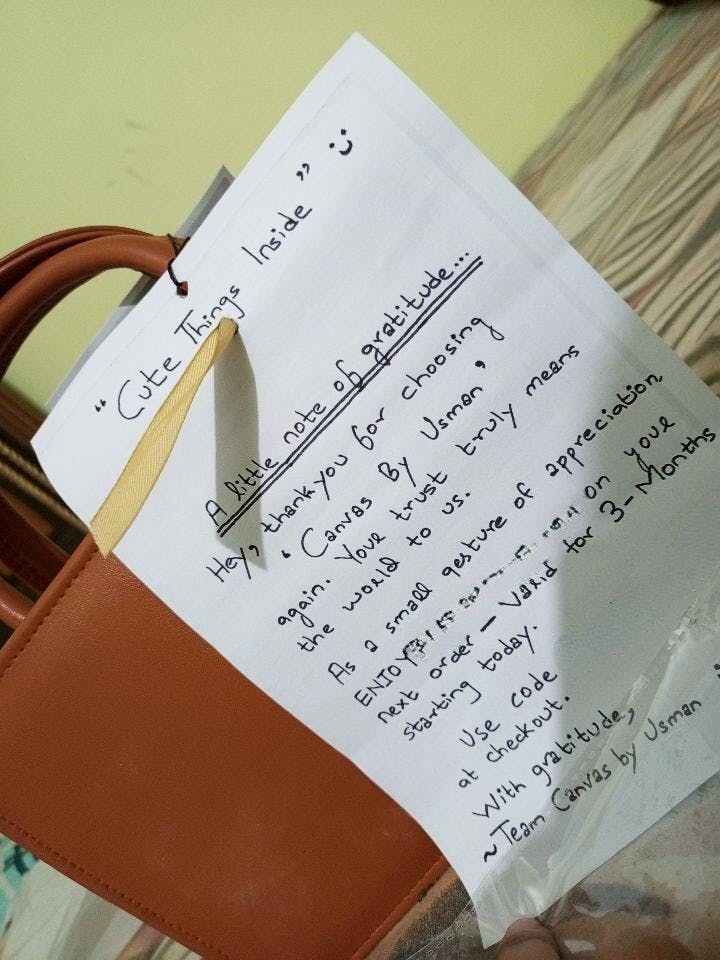 “Cute Things Inside” :)
A little note of gratitude...
Hey, thankyou for choosing
‘Canvas By Usman’
again. Your trust truly means
the world to us.
As a small gesture of appreciation,
ENJOY on your
next order – Valid for 3-Months
starting today.
Use code
at checkout.
With gratitude,
~Team Canvas by Usman